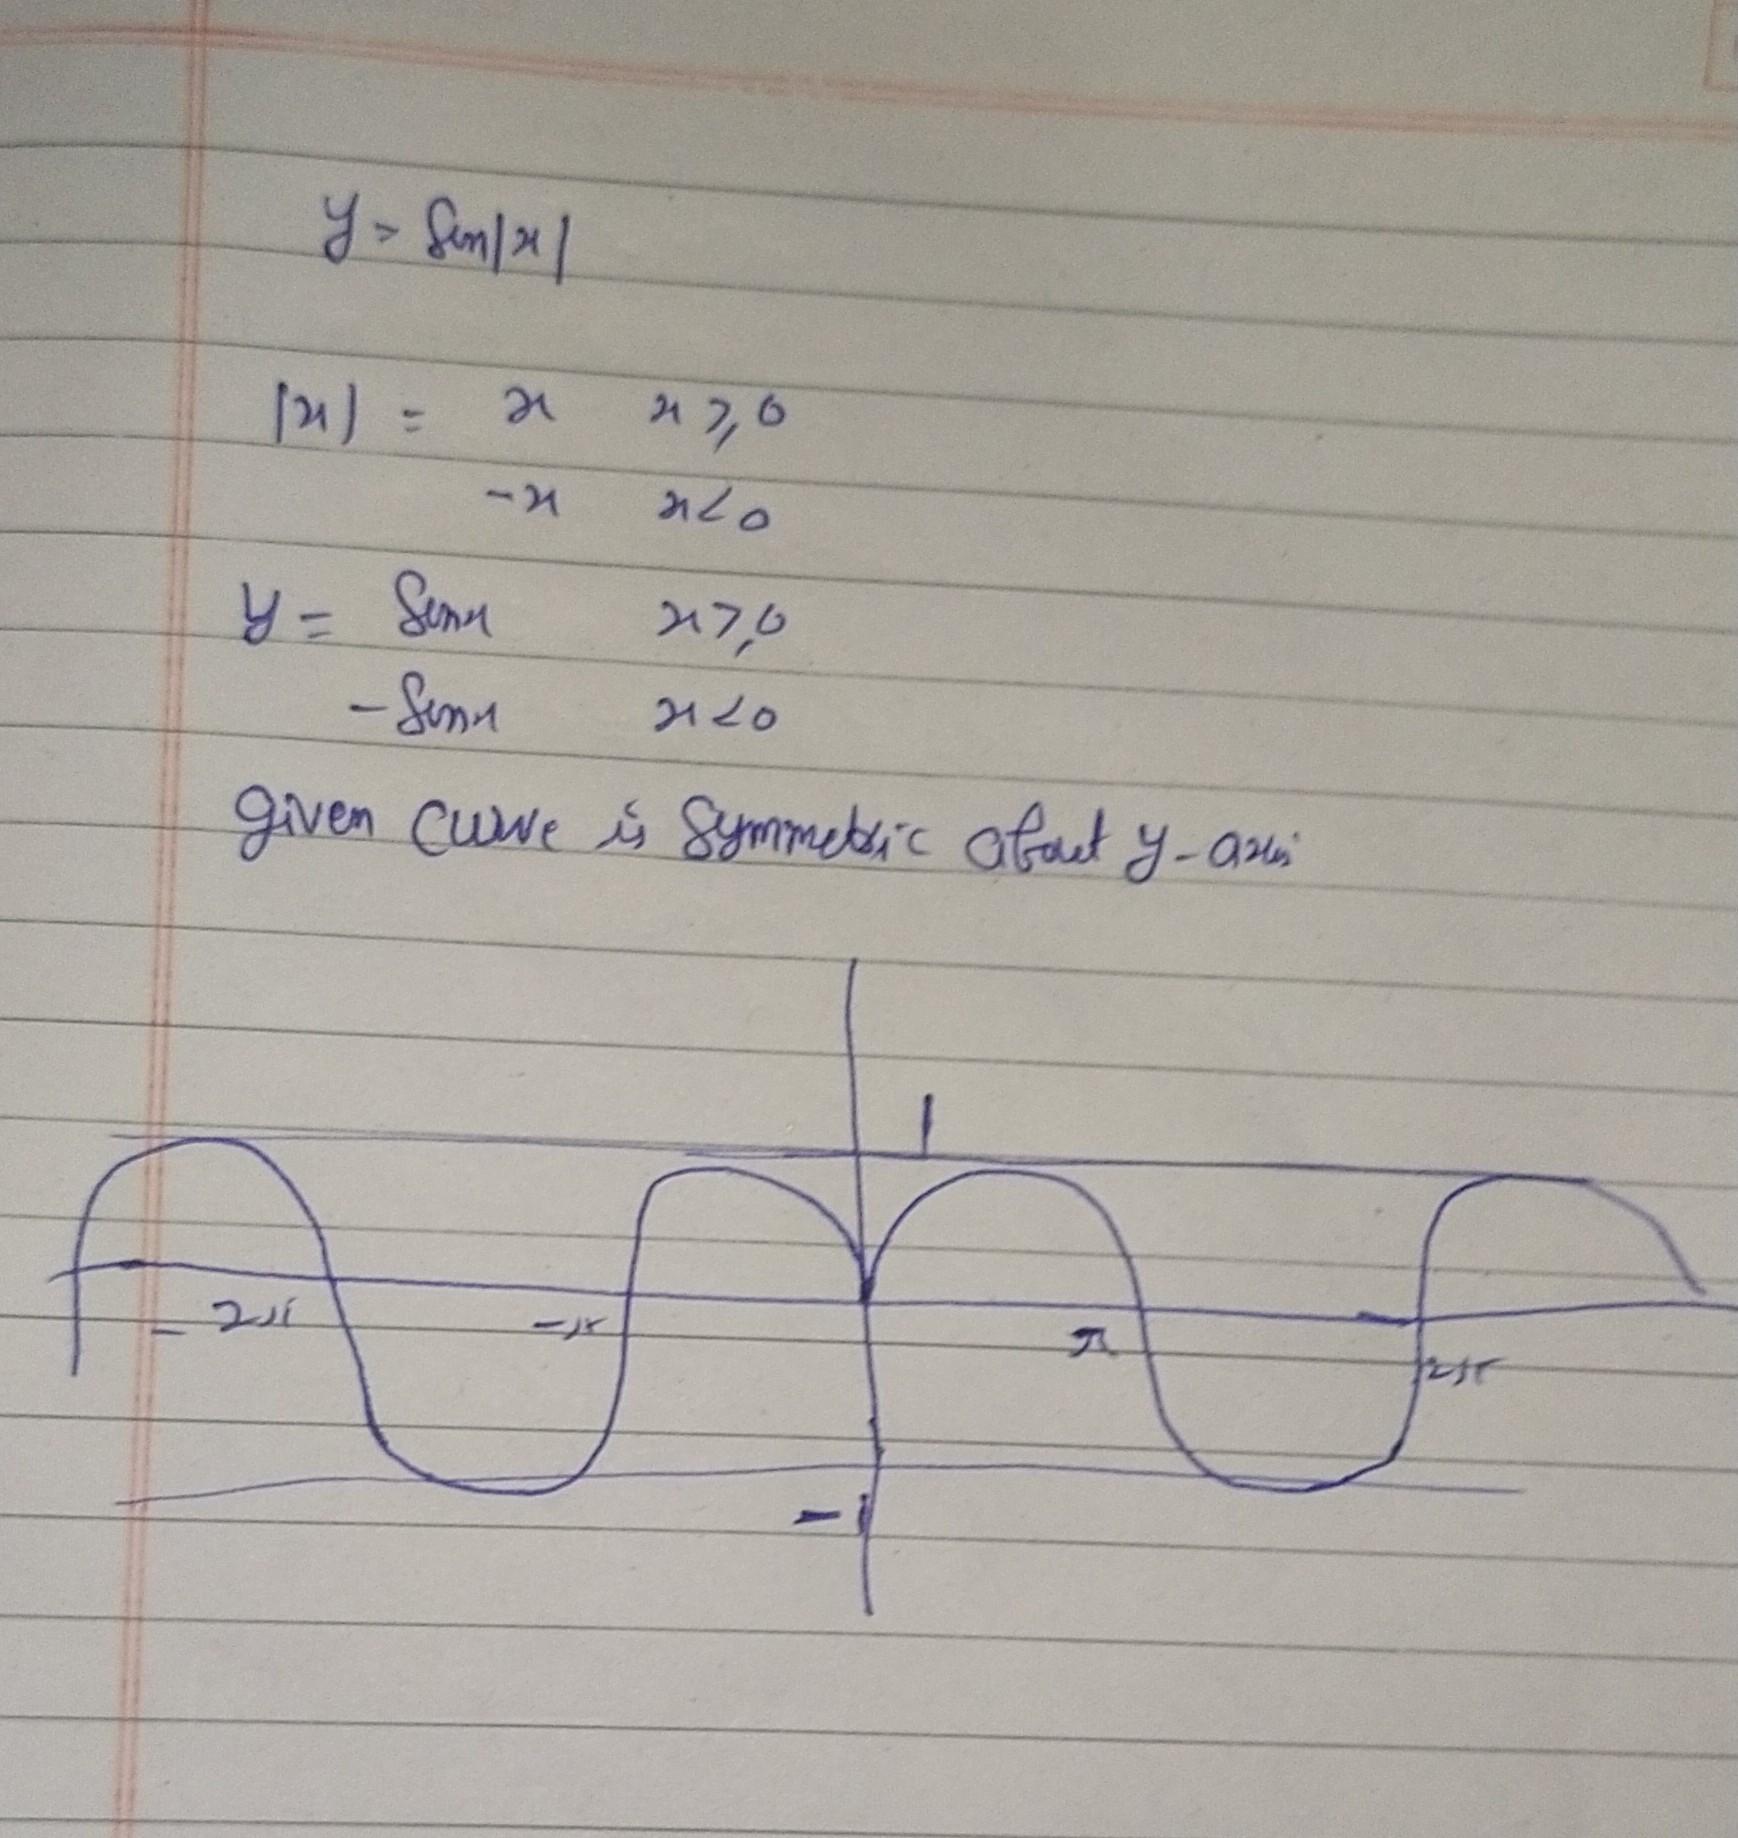 y = Sin|x|
|x| = x x ≥ 0
-x x < 0
y = Sinx x ≥ 0
- Sinx x < 0
given curve is symmetric about y-axis
1
- 2π -π π 2π
-1